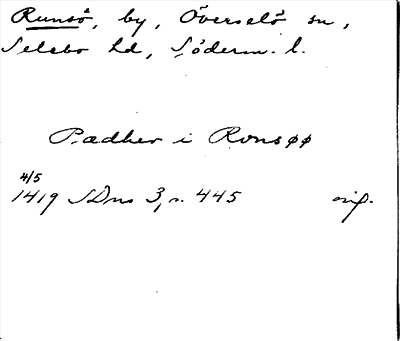 Runsö, by, Överselö sn,
Selebo hd, Söderm. l.
Pædher i Ronsøø
4/5
1419 SDns 3, s. 445 orig.